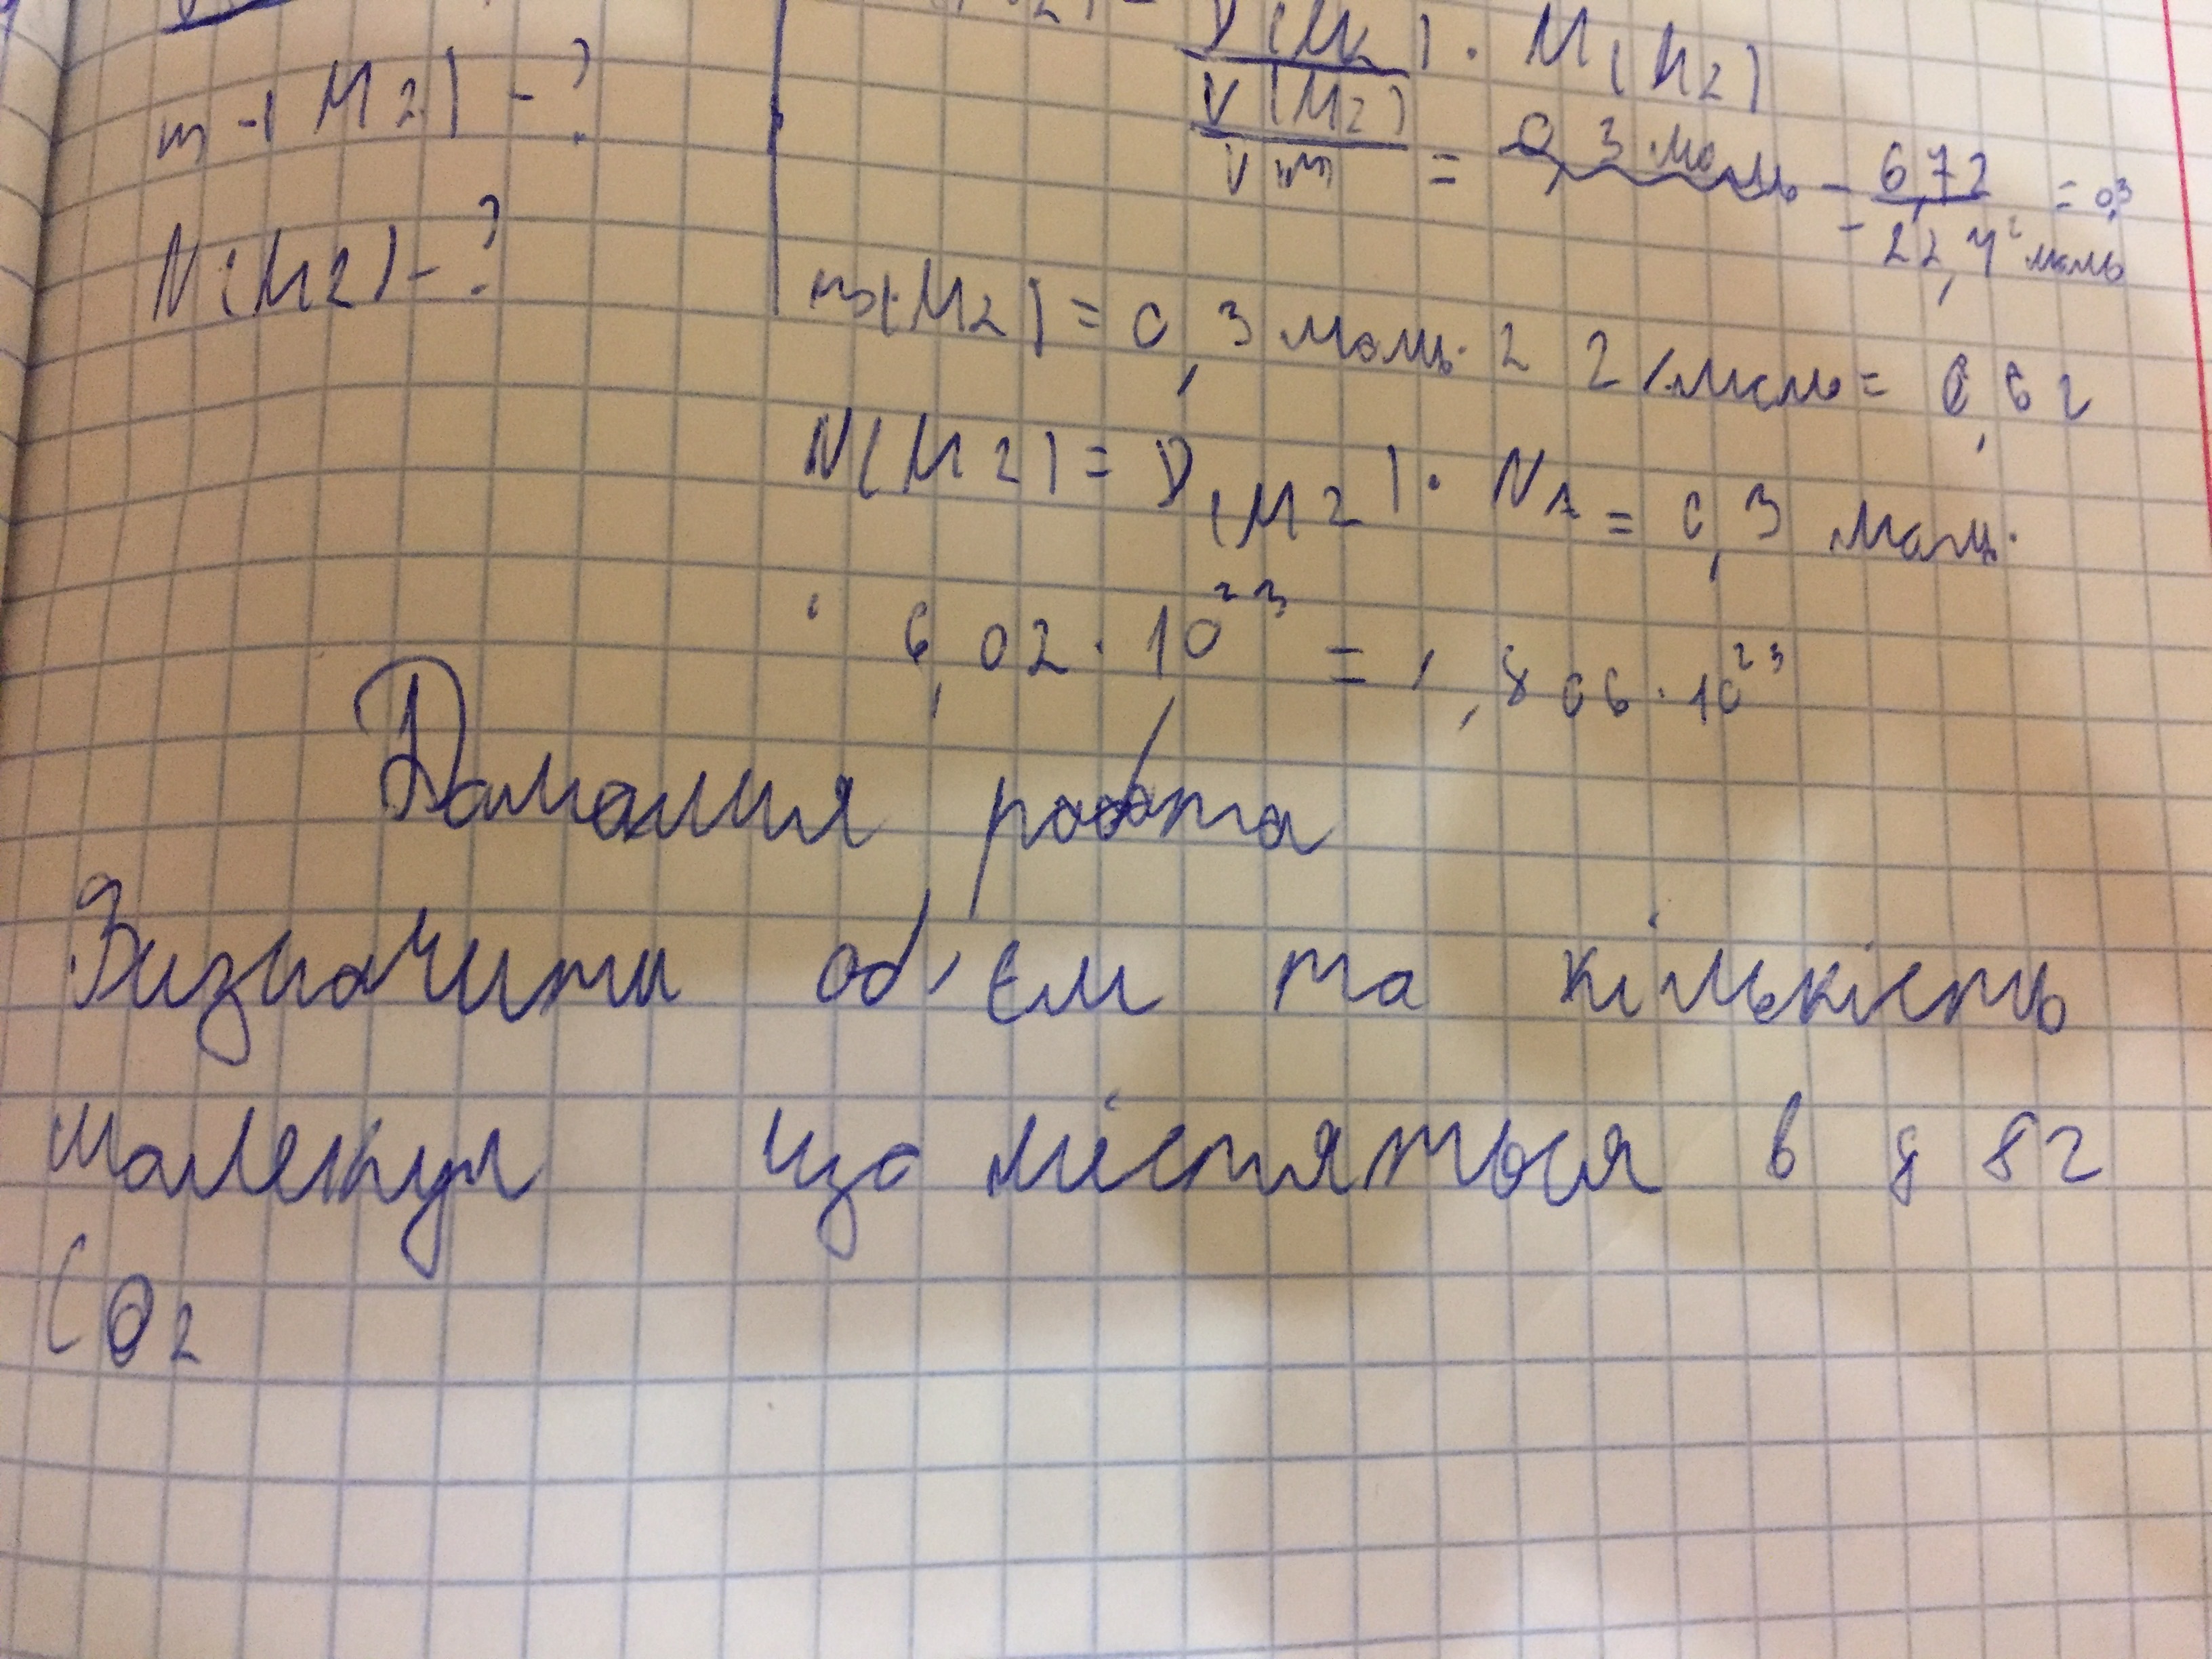 m(H2) - ?
ν(H2) · M(H2)
V(H2)
Vm
= 0,3 моль = 6,72 / 22,4 = 0,3 моль
N(H2) - ?
m(H2) = 0,3 моль · 2 г/моль = 0,6 г
N(H2) = ν(H2) · NA = 0,3 моль ·
· 6,02 · 10²³ = 1,806 · 10²³
Домашня робота
Визначити об'єм та кількість
молекул що містяться в 8 8г
CO2